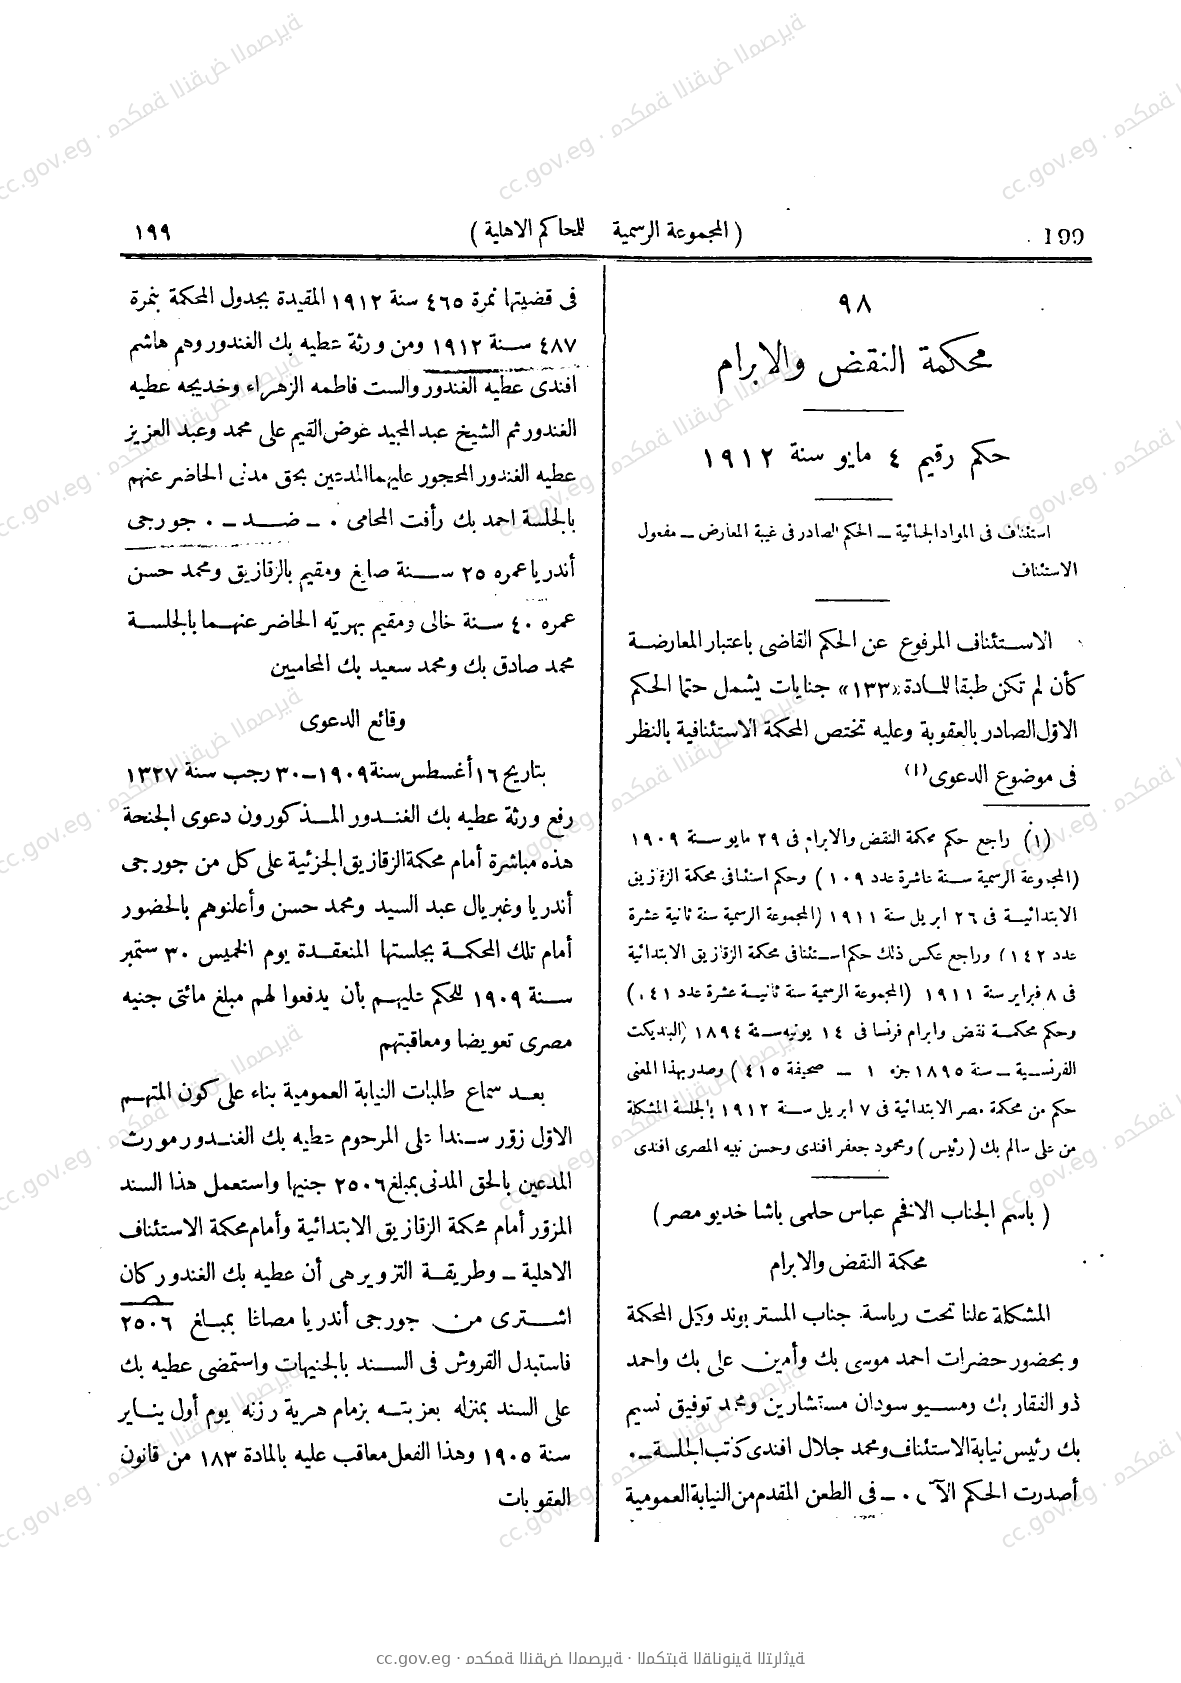 199 ( المجموعة الرسمية للمحاكم الاهلية ) ١٩٩
٩٨
محكمة النقض والابرام
حكم رقيم ٤ مايو سنة ١٩١٢
استئناف فى المواد الجنائية ــ الحكم الصادر فى غيبة المعارض ــ مفعول
الاستئناف
الاستئناف المرفوع عن الحكم القاضى باعتبار المعارضة
كأن لم تكن طبقا للمادة «١٣٣» جنايات يشمل حتما الحكم
الاول الصادر بالعقوبة وعليه تختص المحكمة الاستئنافية بالنظر
فى موضوع الدعوى (١)
(١) راجع حكم محكمة النقض والابرام فى ٢٩ مايو سنة ١٩٠٩
(المجموعة الرسمية سنة عاشرة عدد ١٠٩ ) وحكم استئنافى محكمة الزقازيق
الابتدائية فى ٢٦ ابريل سنة ١٩١١ (المجموعة الرسمية سنة ثانية عشرة
عدد ١٤٢) وراجع عكس ذلك حكم استئنافى محكمة الزقازيق الابتدائية
فى ٨ فبراير سنة ١٩١١ (المجموعة الرسمية سنة ثانية عشرة عدد ٤١ )
وحكم محكمة نقض وابرام فرنسا فى ١٤ يونيه سنة ١٨٩٤ (البنديكت
الفرنسية ــ سنة ١٨٩٥ جزء ١ ــ صحيفة ٤١٥ ) وصدر بهذا المعنى
حكم من محكمة مصر الابتدائية فى ٧ ابريل سنة ١٩١٢ بالجلسة المشكلة
من على سالم بك ( رئيس ) ومحمود جعفر افندى وحسن نبيه المصرى افندى
( باسم الجناب الافخم عباس حلمى باشا خديو مصر )
محكمة النقض والابرام
المشكلة علنا تحت رياسة جناب المستر بوند وكيل المحكمة
وبحضور حضرات احمد موسى بك وأمين على بك واحمد
ذو الفقار بك ومسيو سودان مستشارين ومحمد توفيق نسيم
بك رئيس نيابة الاستئناف ومحمد جلال افندى كاتب الجلسة ــ.
أصدرت الحكم الآتى . ــ فى الطعن المقدم من النيابة العمومية
فى قضيتها نمرة ٤٦٥ سنة ١٩١٢ المقيدة بجدول المحكمة بنمرة
٤٨٧ سنة ١٩١٢ ومن ورثة عطيه بك الغندور وهم هاشم
افندى عطيه الغندور والست فاطمه الزهراء وخديجه عطيه
الغندور ثم الشيخ عبد المجيد عوض القيم على محمد وعبد العزيز
عطيه الغندور المحجور عليهما المدعين بحق مدنى الحاضر عنهم
بالجلسة احمد بك رأفت المحامى . ــ ضــد ــ . جورجى
أندريا عمره ٢٥ سنة صايغ ومقيم بالزقازيق ومحمد حسن
عمره ٤٠ سنة خالى ومقيم بهريّه الحاضر عنهما بالجلسة
محمد صادق بك ومحمد سعيد بك المحاميين
وقائع الدعوى
بتاريخ ١٦ أغسطس سنة ١٩٠٩ ــ ٣٠ رجب سنة ١٣٢٧
رفع ورثة عطيه بك الغندور المذكورون دعوى الجنحة
هذه مباشرة أمام محكمة الزقازيق الجزئية على كل من جورجى
أندريا وغبريال عبد السيد ومحمد حسن وأعلنوهم بالحضور
أمام تلك المحكمة بجلستها المنعقدة يوم الخميس ٣٠ ستمبر
سنة ١٩٠٩ للحكم عليهم بأن يدفعوا لهم مبلغ مائتى جنيه
مصرى تعويضا ومعاقبتهم
بعد سماع طلبات النيابة العمومية بناء على كون المتهم
الاول زوّر سندا على المرحوم عطيه بك الغندور مورث
المدعين بالحق المدنى بمبلغ ٢٥٠٦ جنيها واستعمل هذا السند
المزوّر أمام محكمة الزقازيق الابتدائية وأمام محكمة الاستئناف
الاهلية ــ وطريقة التزوير هى أن عطيه بك الغندور كان
اشترى من جورجى أندريا مصاغا بمبلغ ٢٥٠٦
فاستبدل القروش فى السند بالجنيهات واستمضى عطيه بك
على السند بمنزله بعزبته بزمام هرية رزنه يوم أول يناير
سنة ١٩٠٥ وهذا الفعل معاقب عليه بالمادة ١٨٣ من قانون
العقوبات
cc.gov.eg · محكمة النقض المصرية · المكتبة القانونية التراثية